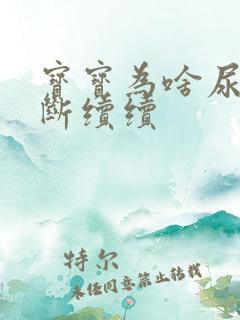 寶寶為啥尿
斷續續
特尔
未径同意禁止转载